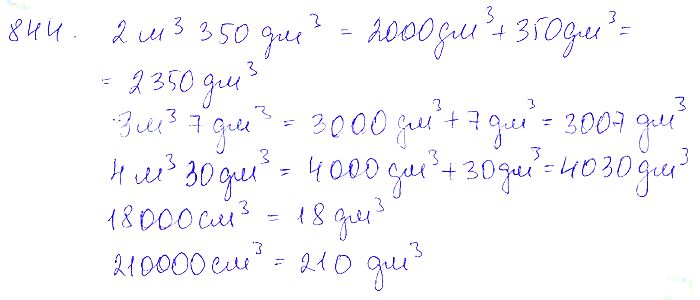 844. 2 м³ 350 дм³ = 2000 дм³ + 350 дм³ =
= 2350 дм³
3 м³ 7 дм³ = 3000 дм³ + 7 дм³ = 3007 дм³
4 м³ 30 дм³ = 4000 дм³ + 30 дм³ = 4030 дм³
18000 см³ = 18 дм³
210000 см³ = 210 дм³